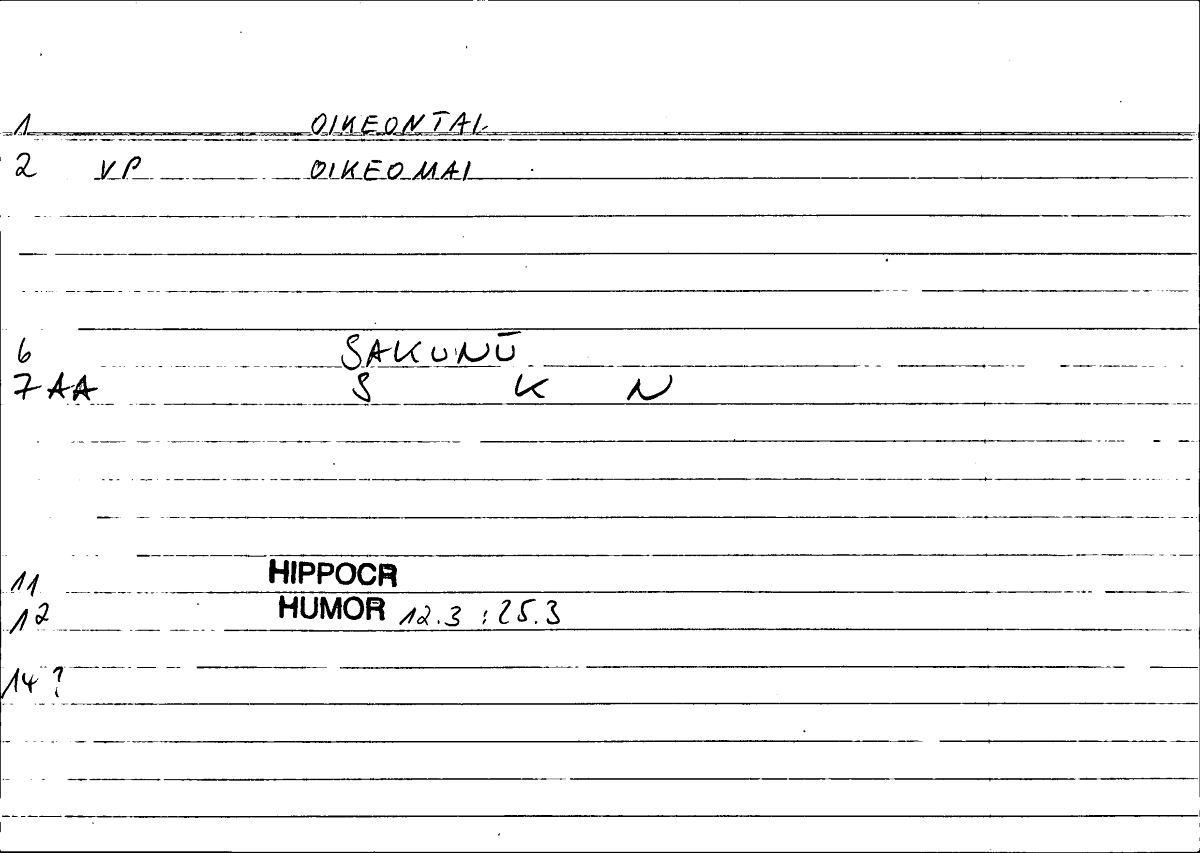 1 OIKEONTAI
2 VP OIKEOMAI
6 SAKUNŪ
7 AA S K N
11 HIPPOCR
12 HUMOR 12.3 : 25.3
14 ?